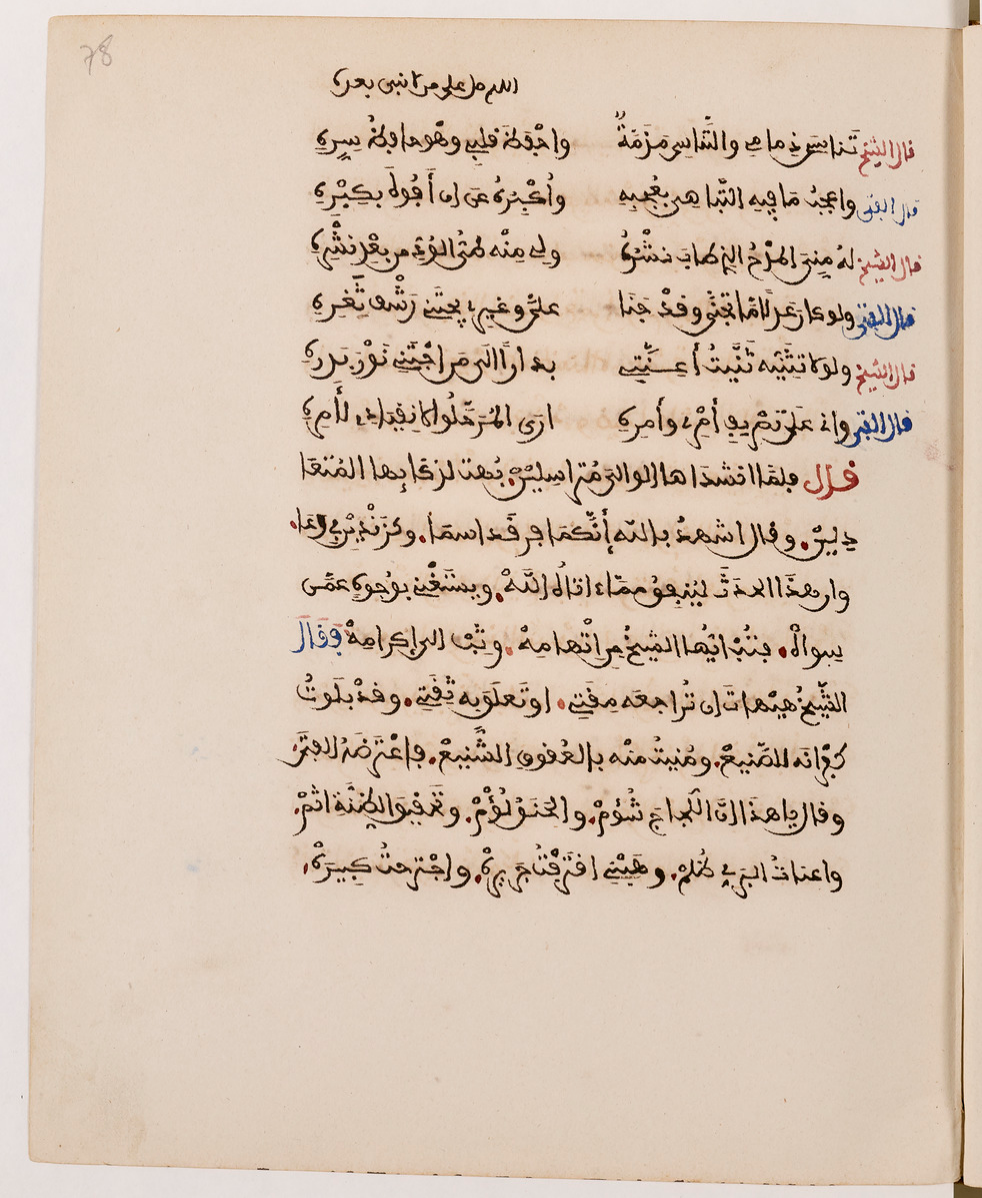 اللهم صل على من لا نبي بعده
قال الشيخ تناسى ذمامي والتناسي مذمة واحفظ قلبي وهو حافظ سره
قال الفتى واعجب ما فيه التباهي بعجبه وأكبره عن ان أفوه بكبره
قال الشيخ له مني المدح الذي طاب نشره ولي منه طي الود من بعد نشره
قال الفتى ولو كان عدلا ما تجنى وقد جنا علي وغيري يجتني رشف ثغره
قال الشيخ ولولا تثنيه ثنيت أعنتي بدارا الى من اجتني نور بدره
قال الفتى واني على تصريف أمري وأمره ارى المر حلوا لانقيادي لأمره
قال فلما انشداها الوالي متراسلين. بهت لذكايهما المتعا
دلين. وقال اشهد بالله أنكما فرقدا سما. وكزندين في وعا.
وان هذا الحدث لينفق مما ءاتاه الله. ويستغني بوجده عمن
سواه. فتب ايها الشيخ من اتهامه. وثب الى إكرامه فقال
الشيخ هيهات ان تراجعه مقتي. او تعلق به ثقتي. وقد بلوت
كفرانه للصنيع. ومنيت منه بالعقوق الشنيع. فاعترضه الفتى.
وقال يا هذا ان اللجاج شؤم. والحنق لؤم. وتحقيق الظنة اثم.
واعنات البري ظلم. وهبني اقترفت جريرة. واجترحت كبيرة.